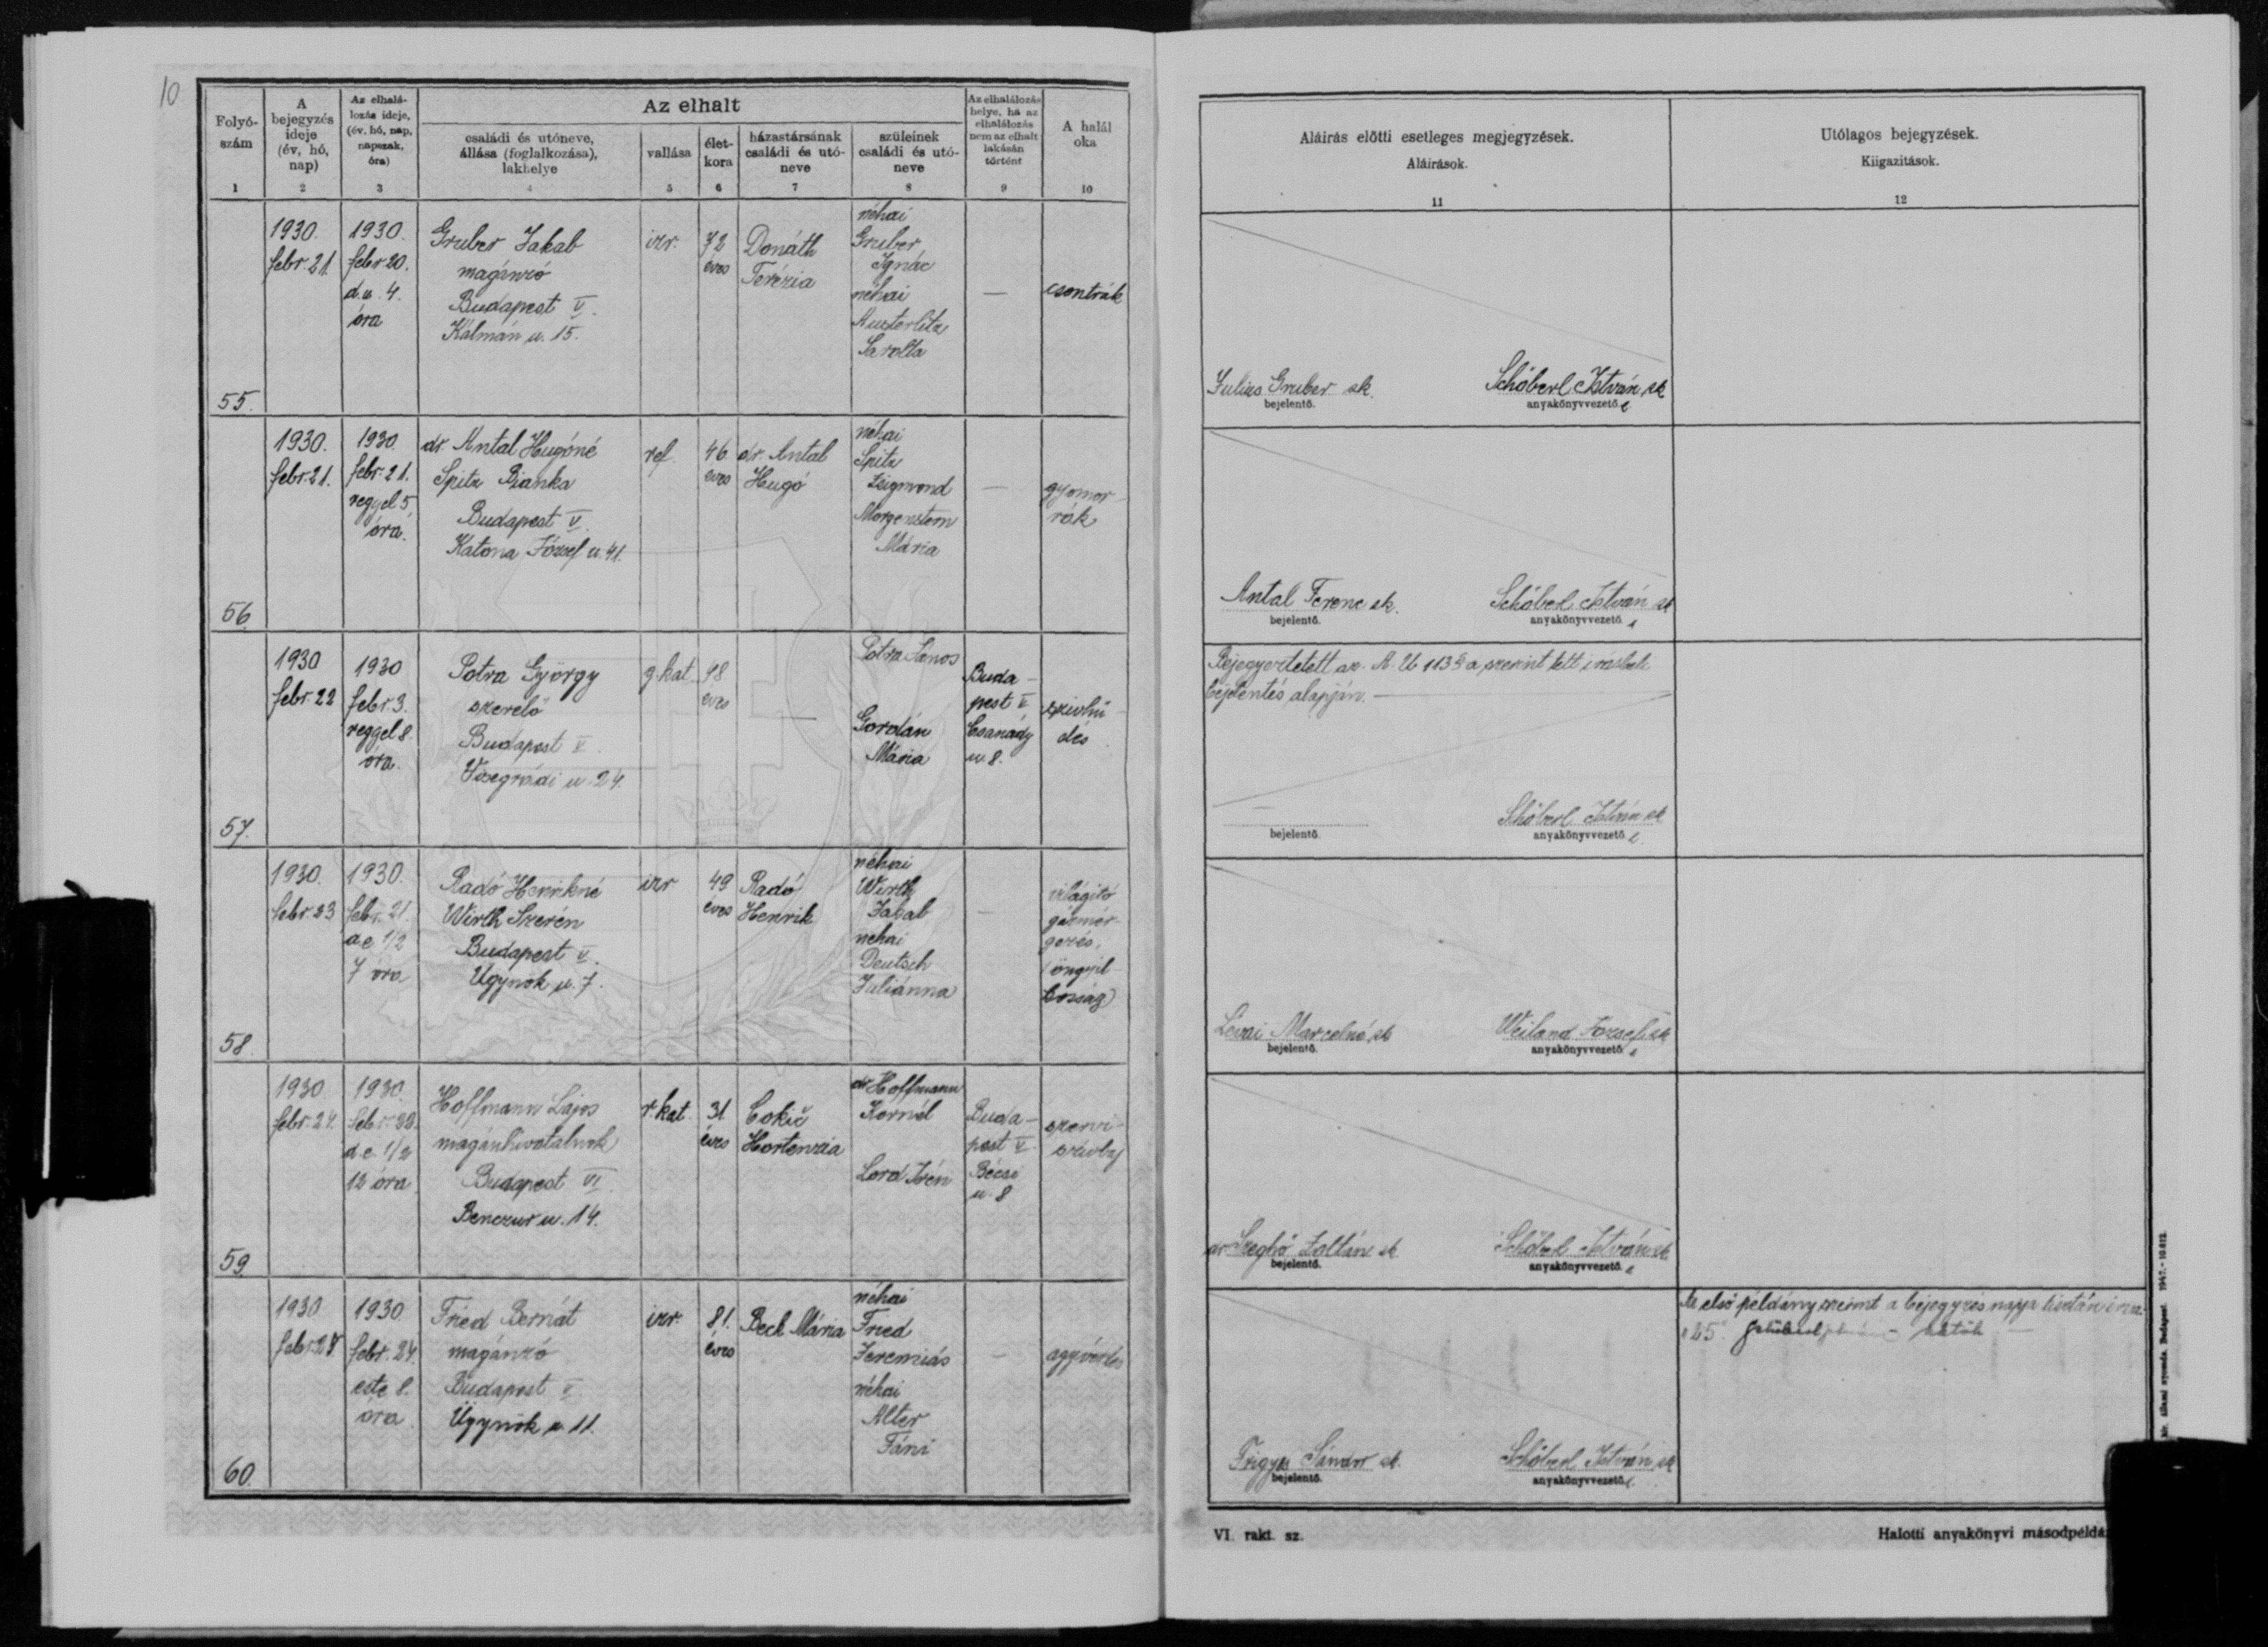 10
Folyó-
szám
1
A
bejegyzés
ideje
(év, hó,
nap)
2
Az elhalá-
lozás ideje,
(év, hó, nap,
napszak,
óra)
3
Az elhalt
családi és utóneve,
állása (foglalkozása),
lakhelye
4
vallása
5
élet-
kora
6
házastársának
családi és utó-
neve
7
szüleinek
családi és utó-
neve
8
Az elhalálozás
helye, ha az
elhalálozás
nem az elhalt
lakásán
történt
9
A halál
oka
10
Aláirás előtti esetleges megjegyzések.
Aláirások.
11
Utólagos bejegyzések.
Kiigazitások.
12
55.
1930.
febr. 21.
1930.
febr 20.
d.u. 4.
óra
Gruber Jakab
magánzó
Budapest V.
Kálmán u. 15.
izr.
72
éves
Donáth
Terézia
néhai
Gruber
Ignác
néhai
Austerlitz
Sarolta
—
csontrák
Julius Gruber sk.
bejelentő.
Schőberl István sk
anyakönyvvezető
56.
1930.
febr. 21.
1930.
febr. 21.
reggel 5
óra.
dr. Antal Hugóné
Spitz Bianka
Budapest V.
Katona József u. 41.
ref.
46
éves
dr. Antal
Hugó
néhai
Spitz
Zsigmond
Morgenstern
Mária
—
gyomor-
rák
Antal Ferenc sk.
bejelentő.
Schőberl István sk
anyakönyvvezető
57.
1930
febr. 22
1930
febr. 3.
reggel 8.
óra.
Potra György
szerelő
Budapest V.
Visegrádi u. 24.
g. kat.
48
éves
—
Potra János
Gordán
Mária
Buda-
pest V.
Csanády
u. 8.
szivhü-
dés
Bejegyeztetett az A. U 113 § a szerint tett irásbeli
bejelentés alapján. —
—
bejelentő.
Schőberl István sk
anyakönyvvezető
58.
1930.
febr. 23
1930.
febr. 21.
d.e. 1/2
7 óra
Radó Henrikné
Wirth Szerén
Budapest V.
Ügynök u. 7.
izr
49
éves
Radó
Henrik
néhai
Wirth
Jakab
néhai
Deutsch
Juliánna
—
világitó
gázmér-
gezés,
(öngyil-
kosság)
Lévai Marcelné sk
bejelentő.
Weiland József sk
anyakönyvvezető
59.
1930.
febr. 24.
1930.
febr. 22.
d.e. 1/2
12 óra
Hoffmann Lajos
magánhivatalnok
Budapest VI.
Benczur u. 14.
r. kat.
31
éves
Cokič
Hortenzia
dr Hoffmann
Kornél
Lord Irén
Buda-
pest V.
Bécsi
u. 8
szervi
szivbaj
dr. Szeghő Zoltán sk.
bejelentő.
Schőberl István sk
anyakönyvvezető
60.
1930
1930
febr. 24.
este 8.
óra
Fried Bernát
magánzó
Budapest V.
Ügynök u 11.
izr.
81.
éves
Beck Mária
néhai
Fried
Jeremiás
néhai
Alter
Fáni
—
agyvérzés
Frigyes Sándor sk.
bejelentő.
Schőberl István sk
anyakönyvvezető
Az első példány szerint a bejegyzés napja
"25."
VI. rakt. sz.
Halotti anyakönyvi másodpéldá
kir. állami nyomda. Budapest. 1947. - 10.812.